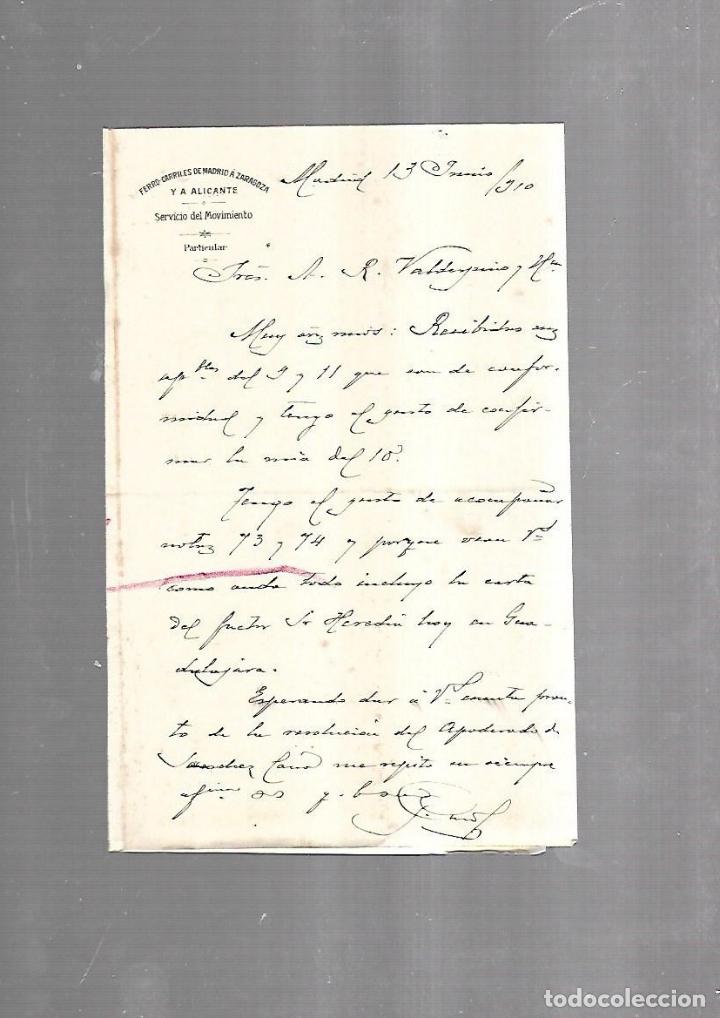 FERRO-CARRILES DE MADRID Á ZARAGOZA
Y A ALICANTE
Servicio del Movimiento
Particular
Madrid 13 Junio /910
Sres. A. R. Valdespino y Hno
Muy Srs mios: Recibidas sus
aptas del 9 y 11 que son de confor-
midad y tengo el gusto de confir-
mar la mia del 10.
Tengo el gusto de acompañar
notas 73 y 74 y porque vean Vds
como anda todo incluyo la carta
del factor Sr Heredia hoy en Gua-
dalajara.
Esperando dar á Vds cuenta pron-
to de la resolución del Apoderado de
Sanchez me repito su siempre
afmo ss q. b s m
todocoleccion
todocoleccion.net